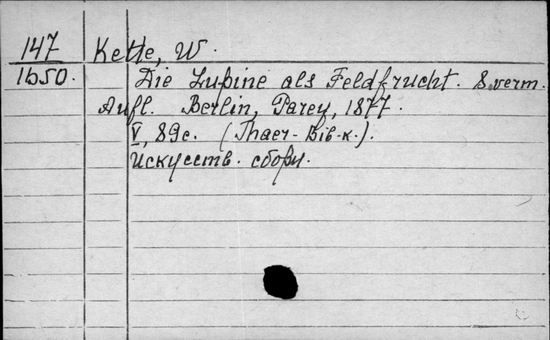 147 Kette, W.
1650. Die Lupine als Feldfrucht. 8. verm.
Aufl. Berlin, Parey, 1877.
V, 89 с. (Thaer-Bib-k.).
Искусств. сборн.